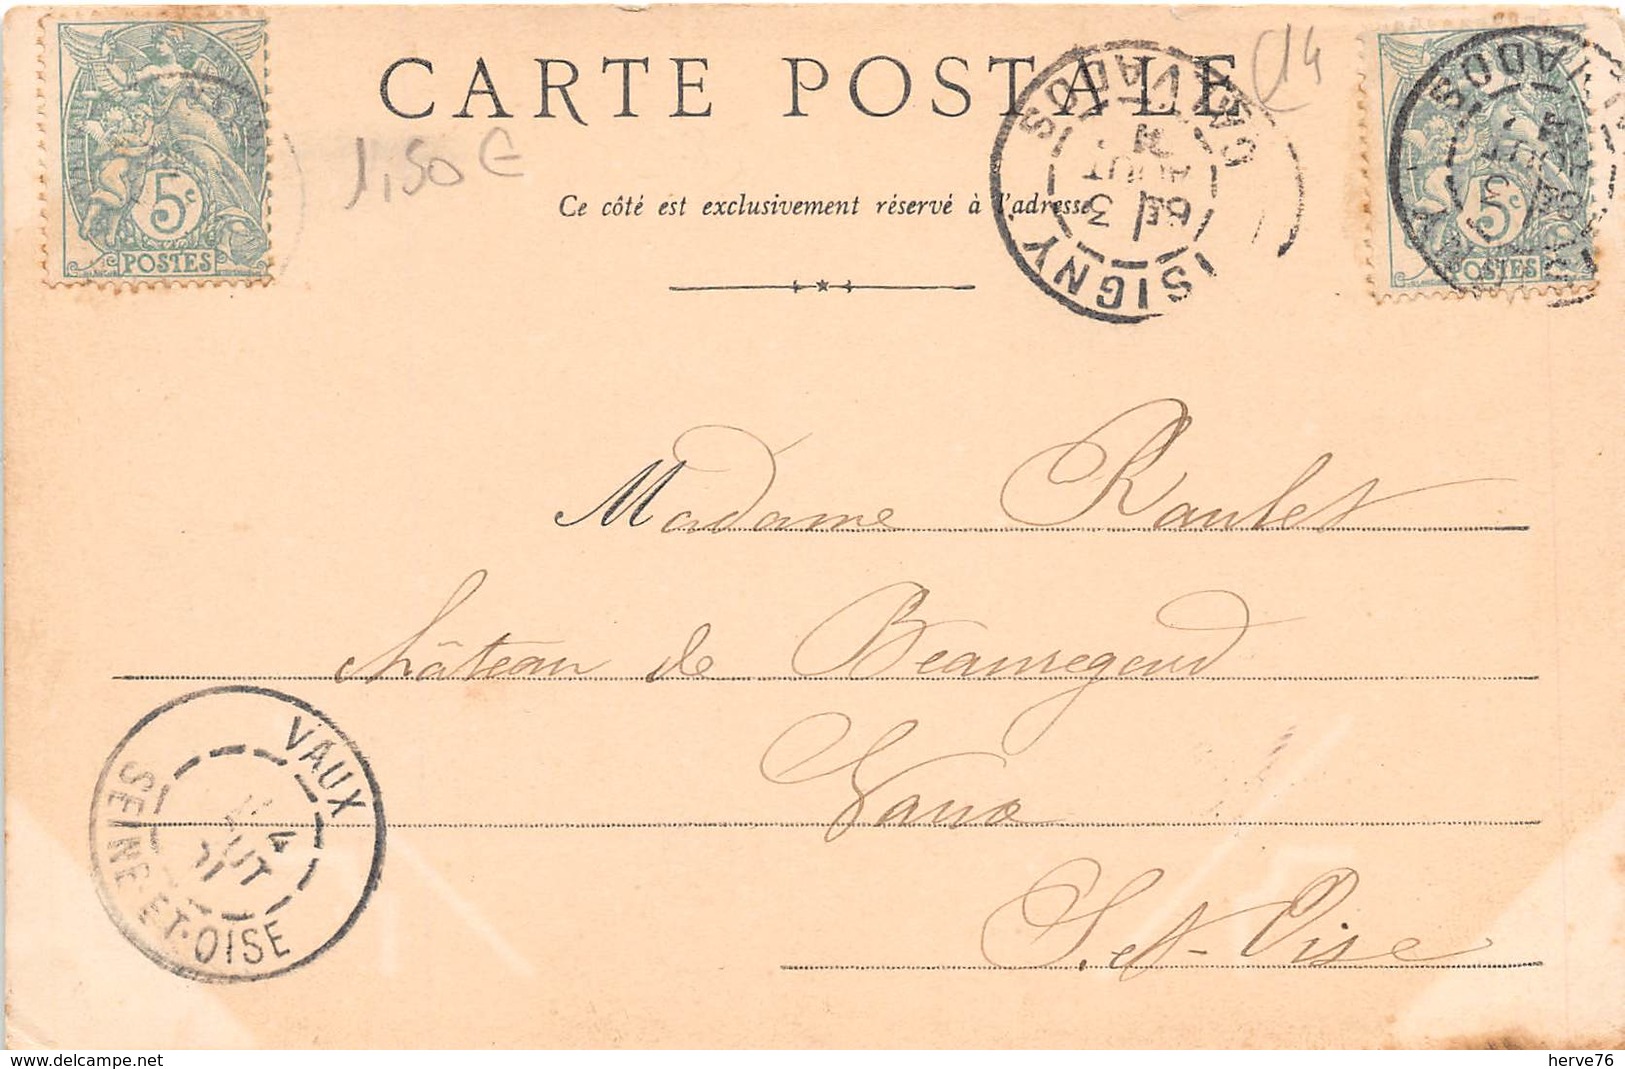 CARTE POSTALE
14
1,50 €
Ce côté est exclusivement réservé à l'adresse
5c
POSTES
5c
POSTES
ISIGNY
CALVADOS
3
AOUT
Madame Raulet
château de Beauregard
Vaux
S. et-Oise
VAUX
4
SEINE-ET-OISE
delcampe.net
herve76